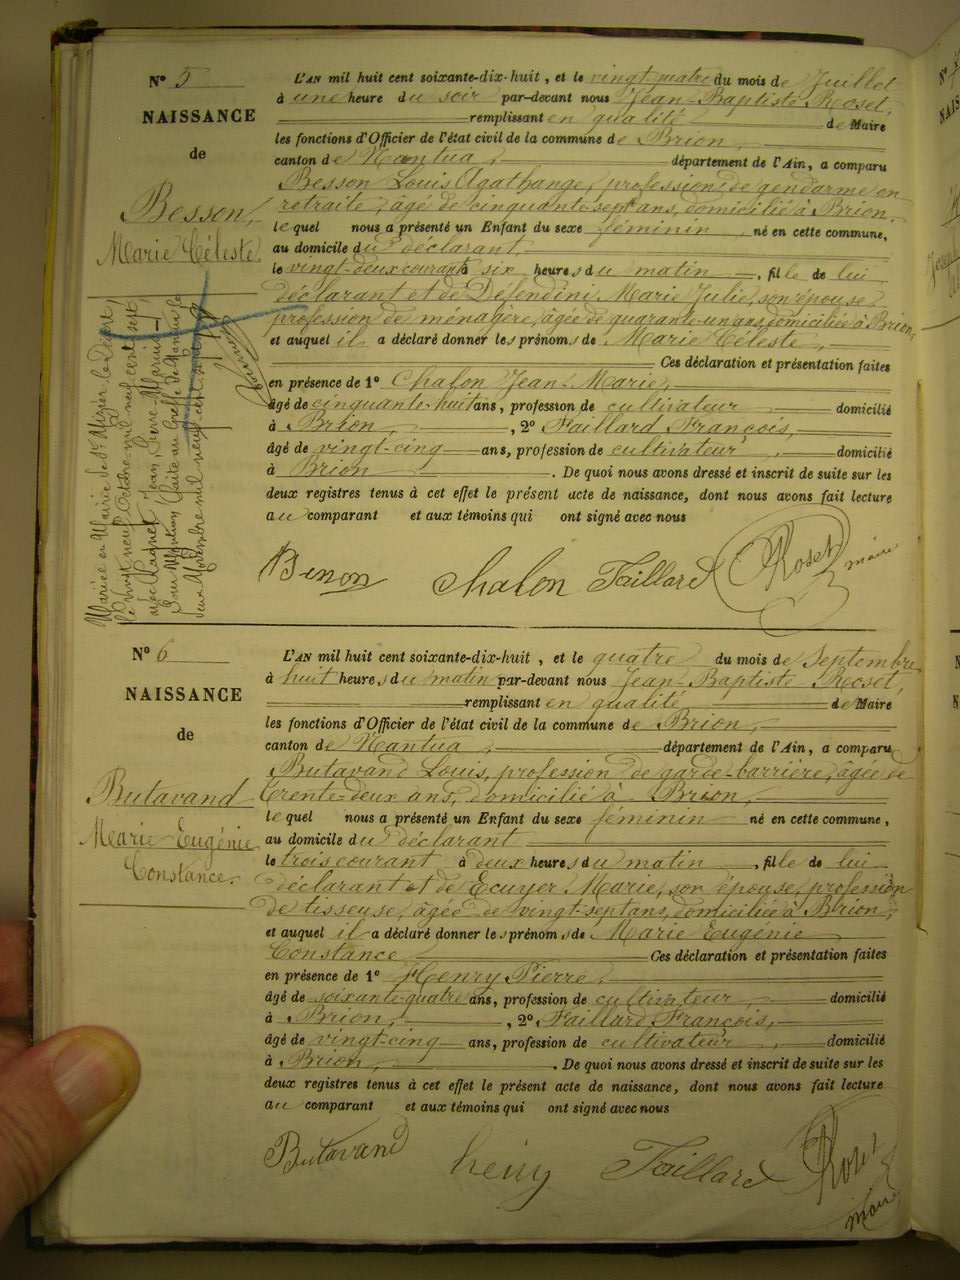 N° 5
NAISSANCE
de
Besson,
Marie Céleste.
L'AN mil huit cent soixante-dix-huit, et le vingt-quatre du mois de Juillet
à une heure du soir par-devant nous Jean-Baptiste Roset,
remplissant en qualité de Maire
les fonctions d'Officier de l'état civil de la commune de Brion,
canton de Nantua, département de l'Ain, a comparu
Besson Louis Agathange, profession de gendarme en
retraite, âgé de cinquante-sept ans, domicilié à Brion,
le quel nous a présenté un Enfant du sexe féminin né en cette commune,
au domicile du déclarant,
le vingt-deux courant à six heures du matin, fille de lui
déclarant et de Défendini Marie Julie, son épouse
profession de ménagère, âgée de quarante-un ans domiciliée à Brion,
et auquel il a déclaré donner les prénoms de Marie Céleste,
Ces déclaration et présentation faites
en présence de 1° Chalon Jean-Marie,
âgé de cinquante-huit ans, profession de cultivateur domicilié
à Brion, 2° Faillard François,
âgé de vingt-cinq ans, profession de cultivateur, domicilié
à Brion. De quoi nous avons dressé et inscrit de suite sur les
deux registres tenus à cet effet le présent acte de naissance, dont nous avons fait lecture
au comparant et aux témoins qui ont signé avec nous
Chalon Faillard Roset maire
Mariée en Mairie de St le
le vingt neuf Octobre mil neuf cent sept,
avec Jean Pierre Marius
Pour Mention faite au Greffe de Nantua le
deux Novembre mil neuf cent sept
N° 6
NAISSANCE
de
Butavand
Marie Eugénie
Constance.
L'AN mil huit cent soixante-dix-huit, et le quatre du mois de Septembre
à huit heures du matin par-devant nous Jean-Baptiste Roset,
remplissant en qualité de Maire
les fonctions d'Officier de l'état civil de la commune de Brion,
canton de Nantua, département de l'Ain, a comparu
Butavand Louis, profession de garde-barrière, âgée de
trente-deux ans, domicilié à Brion,
le quel nous a présenté un Enfant du sexe féminin né en cette commune,
au domicile du déclarant
le trois courant à deux heures du matin, fille de lui
déclarant et de Ecuyer Marie, son épouse, profession
de tisseuse, âgée de vingt-sept ans, domiciliée à Brion,
et auquel il a déclaré donner les prénoms de Marie Eugénie
Constance Ces déclaration et présentation faites
en présence de 1° Henry Pierre,
âgé de soixante-quatre ans, profession de cultivateur, domicilié
à Brion, 2° Faillard François,
âgé de vingt-cinq ans, profession de cultivateur, domicilié
à Brion, De quoi nous avons dressé et inscrit de suite sur les
deux registres tenus à cet effet le présent acte de naissance, dont nous avons fait lecture
au comparant et aux témoins qui ont signé avec nous
Butavand henry Faillard Roset
maire